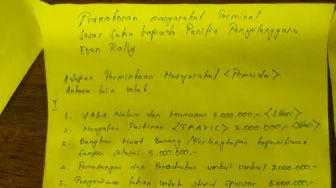 Permohonan masyarakat Terminal
kepada Panitia Penyelenggara
Even Rally
Adapun Permintaan Masyarakat <Pemuda>
Antara lain ialah.
I
1. JAGA Malam dan keamanan 3.000.000,- <3Hari>
2. Mengatur Parkiran <TRAVIC> 3.000.000,- <3Hari>
3. Bongkar Muat Barang / Perlengkapan
sampai selesai 5.000.000-
4. Pemasangan dan umbul umbul 2.000.000,-
5. lahan untuk stand sponsor